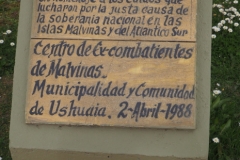 en homenaje a los caídos que
lucharon por la justa causa de
la soberanía nacional en las
Islas Malvinas y del Atlántico Sur
Centro de Ex-combatientes
de Malvinas.
Municipalidad y Comunidad
de Ushuaia. 2-Abril-1988